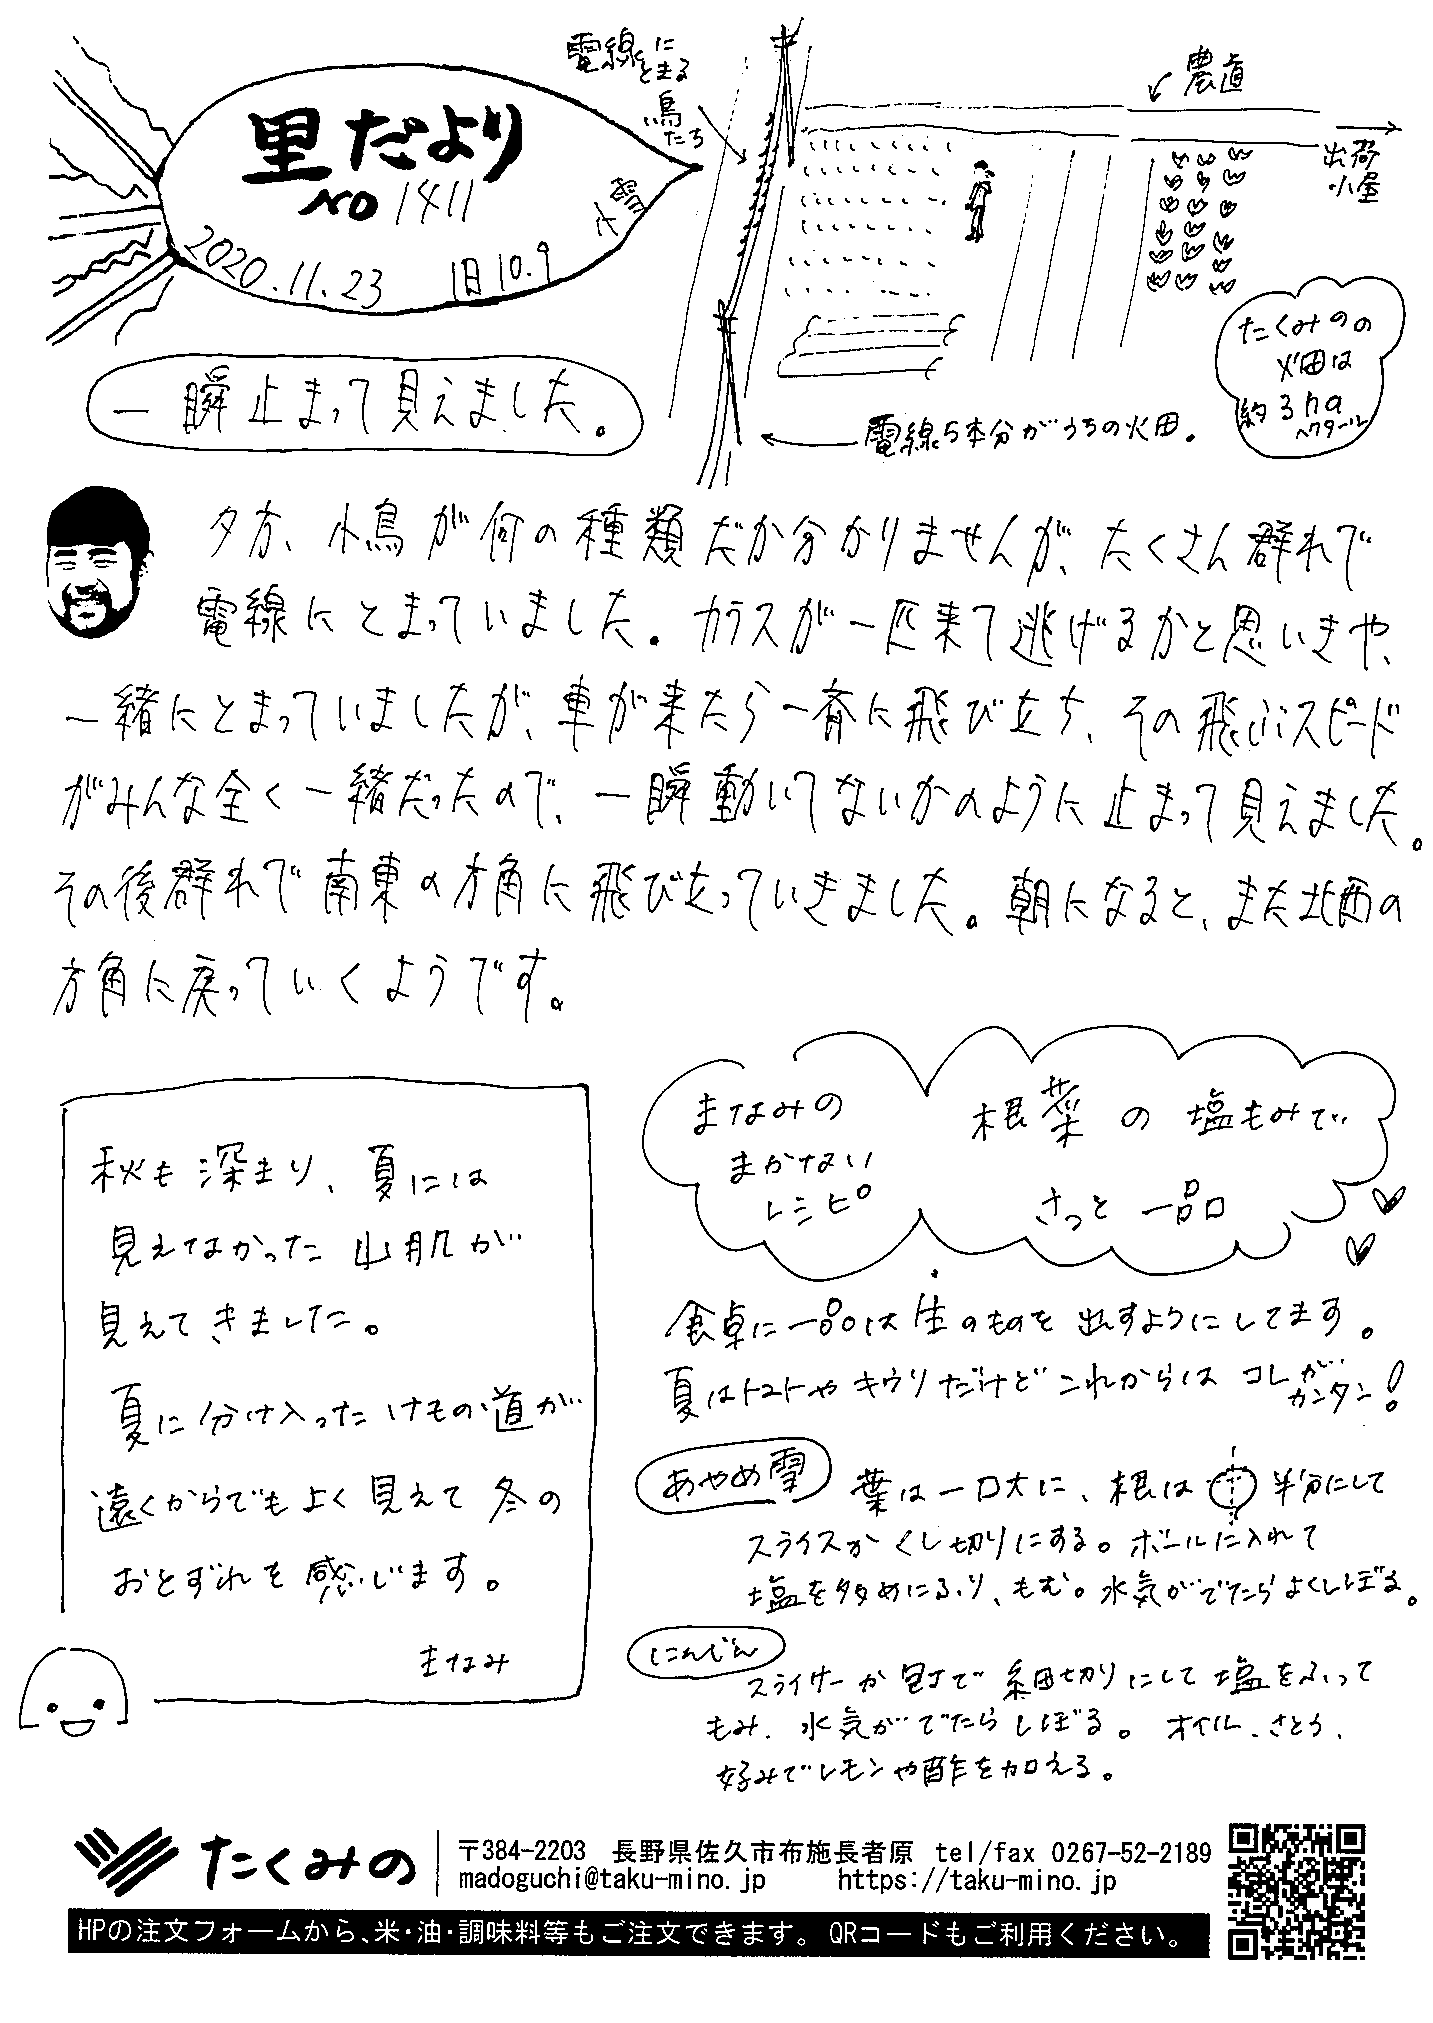 里だより
NO 1411
2020.11.23 旧10.9
小雪
電線に
とまる
鳥
たち
農道
出荷
小屋
たくみのの
畑は
約3ha
ヘクタール
電線5本分がうちの畑。
一瞬止まって見えました。
夕方、小鳥が何の種類だか分かりませんが、たくさん群れで
電線にとまっていました。カラスが一匹来て逃げるかと思いきや、
一緒にとまっていましたが、車が来たら一斉に飛び立ち、その飛ぶスピード
がみんな全く一緒だったので、一瞬動いてないかのように止まって見えました。
その後群れで南東の方角に飛び立っていきました。朝になると、また北西の
方角に戻っていくようです。
秋も深まり、夏には
見えなかった山肌が
見えてきました。
夏に分け入ったけもの道が
遠くからでもよく見えて冬の
おとずれを感じます。
まなみ
まなみの
まかない
レシピ
根菜の塩もみで
さっと一品
食卓に一品は生のものを出すようにしてます。
夏はトマトやキウリだけどこれからは コレが
カンタン!
あやめ雪 葉は一口大に、根は 半分にして
スライスかくし切りにする。ボールに入れて
塩を多めにふり、もむ。水気がでたらよくしぼる。
にんじん
スライサーか包丁で細切りにして塩をふって
もみ、水気がでたらしぼる。オイル、さとう、
好みでレモンや酢を加える。
たくみの
〒384-2203 長野県佐久市布施長者原 tel/fax 0267-52-2189
madoguchi@taku-mino.jp https://taku-mino.jp
HPの注文フォームから、米・油・調味料等もご注文できます。QRコードもご利用ください。